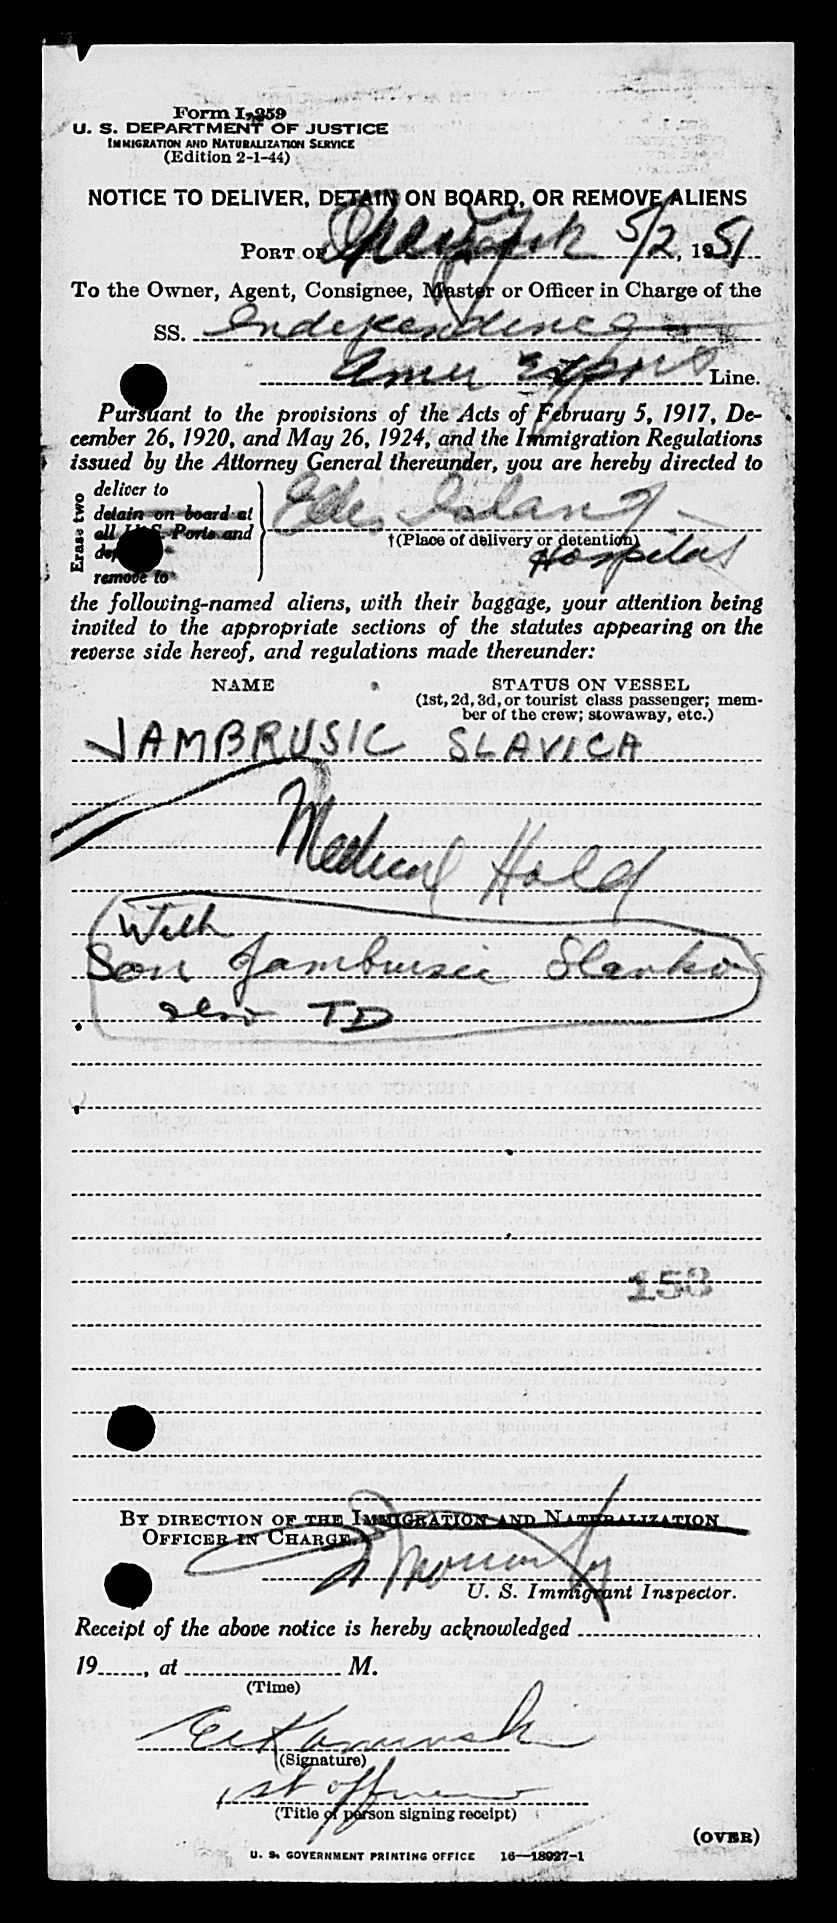 Form I-259
U. S. DEPARTMENT OF JUSTICE
IMMIGRATION AND NATURALIZATION SERVICE
(Edition 2-1-44)
NOTICE TO DELIVER, DETAIN ON BOARD, OR REMOVE ALIENS
PORT OF New York 5/2, 1951
To the Owner, Agent, Consignee, Master or Officer in Charge of the
SS. Independence
Amer Export Line.
Pursuant to the provisions of the Acts of February 5, 1917, De-
cember 26, 1920, and May 26, 1924, and the Immigration Regulations
issued by the Attorney General thereunder, you are hereby directed to
Erase two
deliver to
detain on board at
all U. S. Ports and
remove to
Ellis Island
†(Place of delivery or detention)
Hospital
the following-named aliens, with their baggage, your attention being
invited to the appropriate sections of the statutes appearing on the
reverse side hereof, and regulations made thereunder:
NAME STATUS ON VESSEL
(1st, 2d, 3d, or tourist class passenger; mem-
ber of the crew; stowaway, etc.)
JAMBRUSIC SLAVICA
Medical Hold
With
Son Jambrusic Slavko
also TD
153
BY DIRECTION OF THE IMMIGRATION AND NATURALIZATION
OFFICER IN CHARGE.
U. S. Immigrant Inspector.
Receipt of the above notice is hereby acknowledged
19......, at .................... M.
(Time)
(Signature)
1st officer
(Title of person signing receipt)
(OVER)
U. S. GOVERNMENT PRINTING OFFICE 16—18927-1